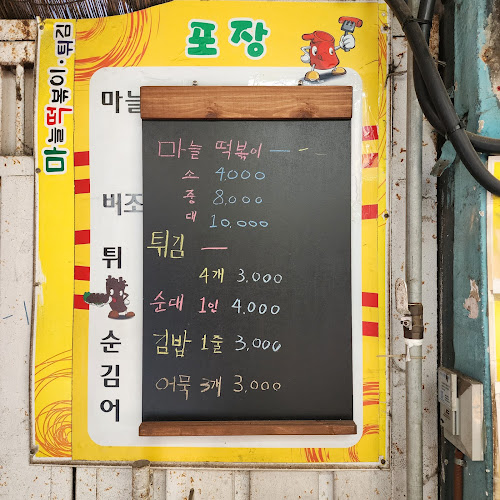 포장
마늘떡볶이·튀김
마늘
버조
튀
순
김
어
마늘 떡볶이
소 4,000
중 8,000
대 10,000
튀김
4개 3,000
순대 1인 4,000
김밥 1줄 3,000
어묵 3개 3,000